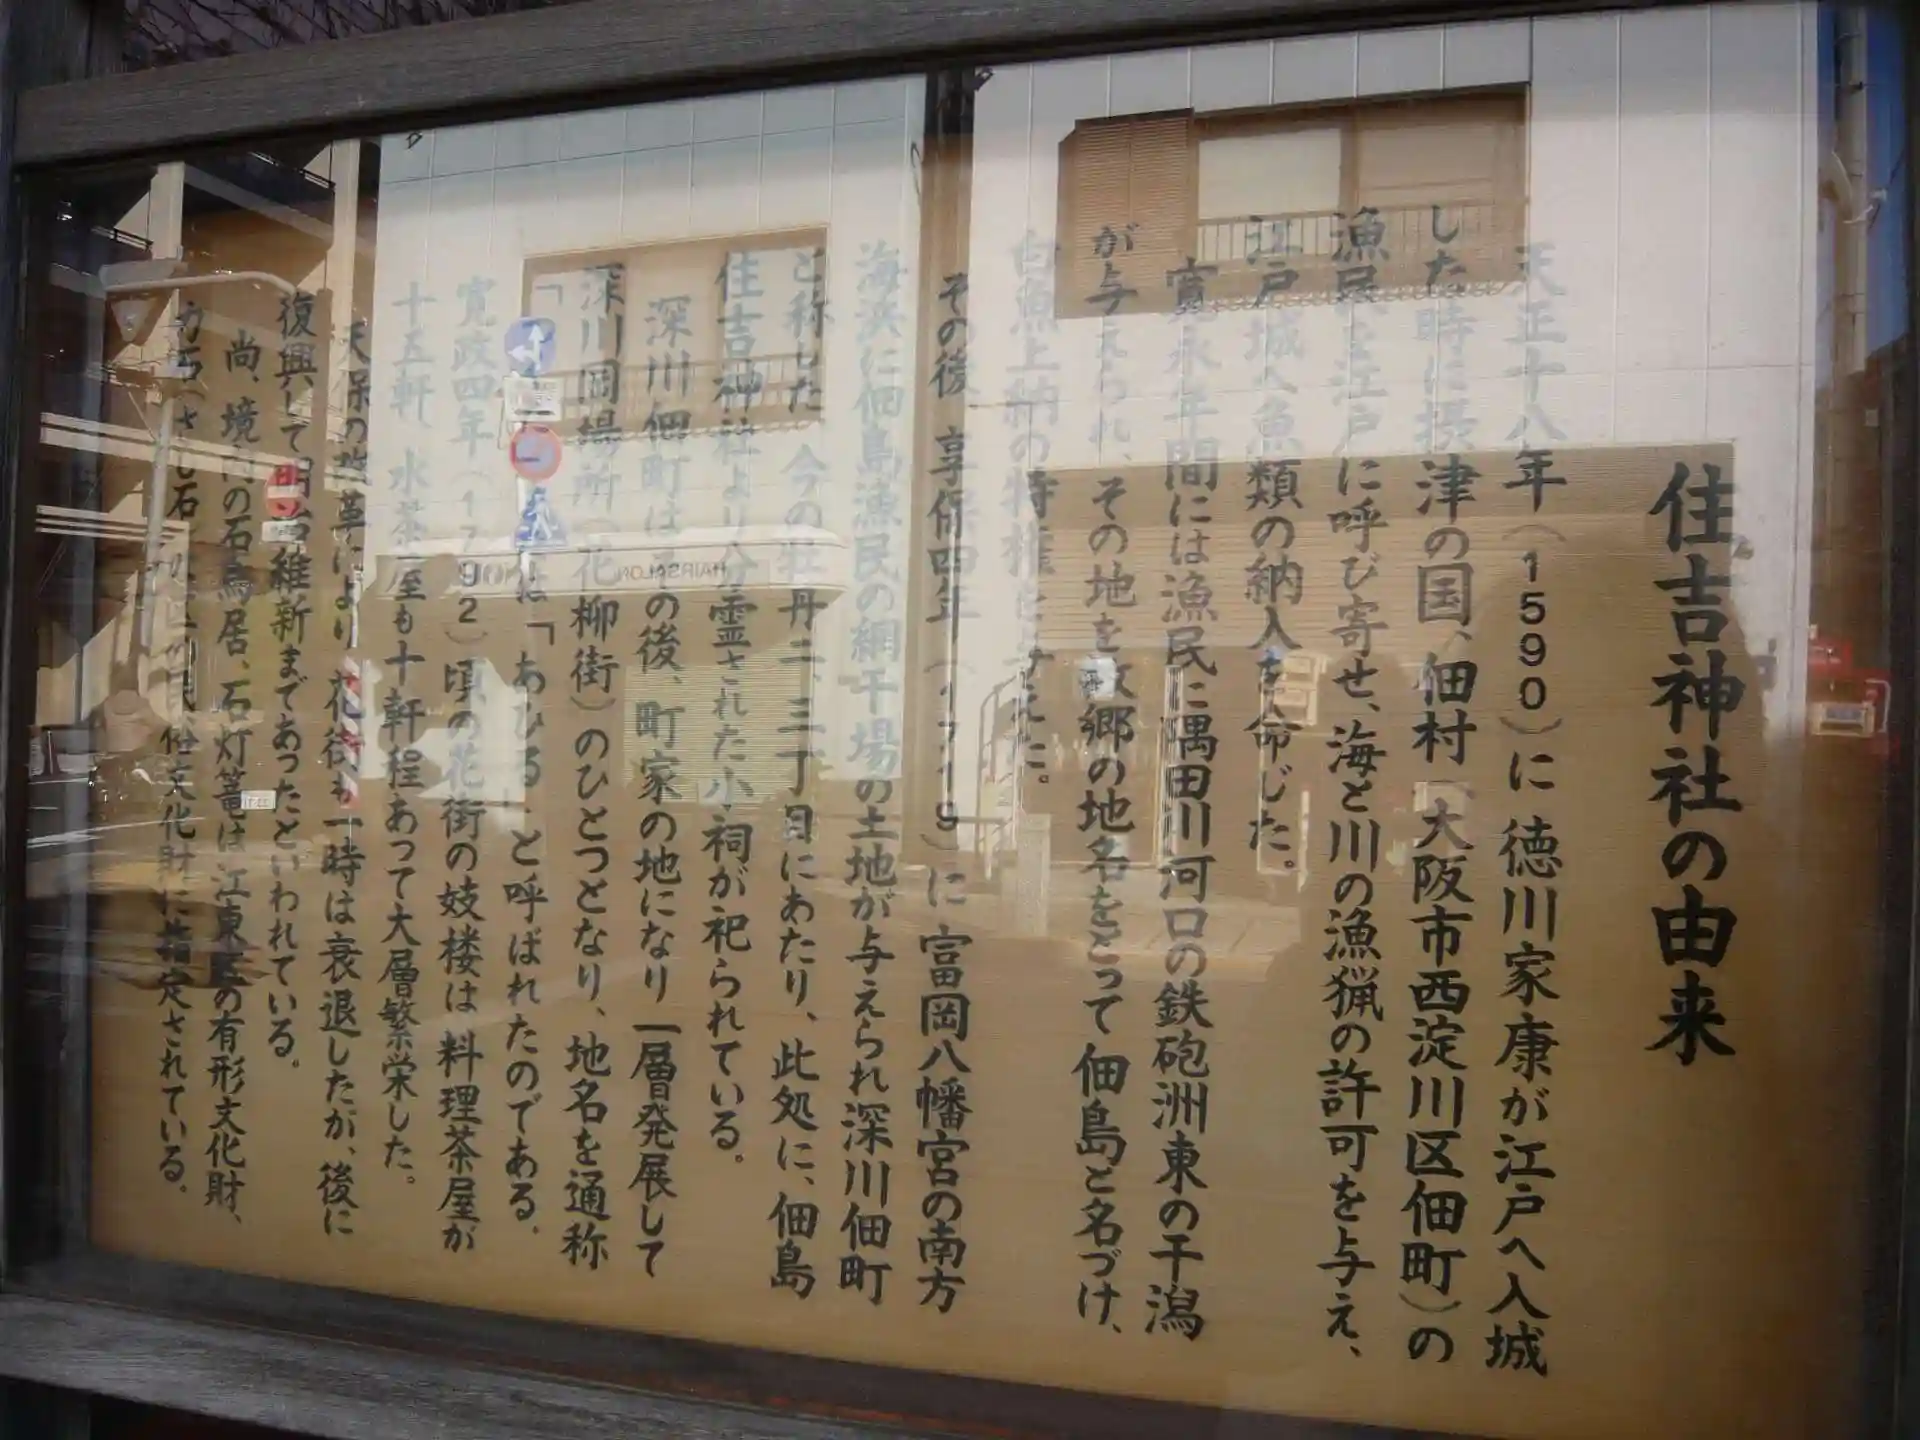 住吉神社の由来
天正十八年(1590)に徳川家康が江戸へ入城
した時に摂津の国、佃村(大阪市西淀川区佃町)の
漁民を江戸に呼び寄せ、海と川の漁猟の許可を与え、
江戸城へ魚類の納入を命じた。
寛永年間には漁民に隅田川河口の鉄砲洲東の干潟
が与えられ、その地を故郷の地名をとって佃島と名づけ、
白魚上納の特権を与えた。
その後 享保四年(1719)に富岡八幡宮の南方
海浜に佃島漁民の網干場の土地が与えられ深川佃町
と称した 今の牡丹二、三丁目にあたり、此処に、佃島
住吉神社より分霊された小祠が祀られている。
深川佃町はその後、町家の地になり一層発展して
深川岡場所(花柳街)のひとつとなり、地名を通称
「は「あひる」と呼ばれたのである.
寛政四年(1792)頃の花街の妓楼は料理茶屋が
十五軒、水茶屋も十軒程あって大層繁栄した。
天保の改革により花街も一時は衰退したが、後に
復興して明治維新まであったといわれている。
尚、境内の石鳥居、石灯篭は江東区の有形文化財、
力石(さし石 民俗文化財に指定されている。
HAIR SALON